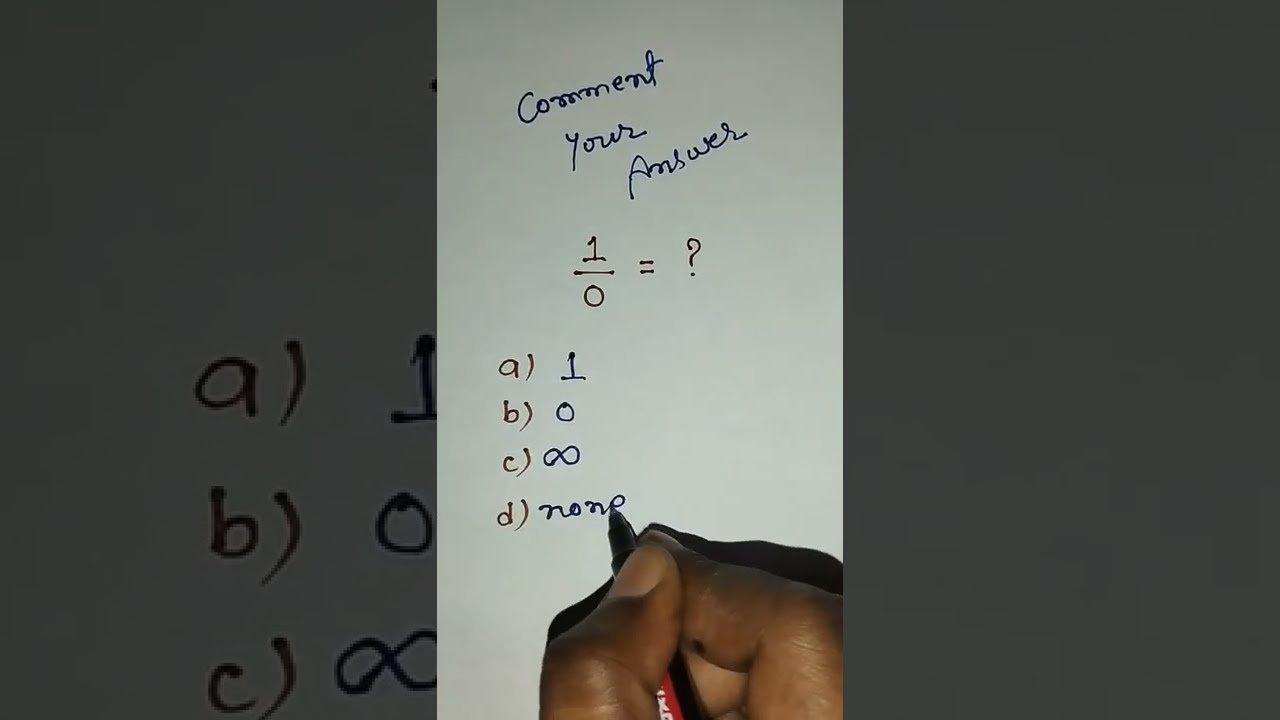 Comment
Your
Answer
1
0
= ?
a) 1
b) 0
c) ∞
d) none
a) 1
b) 0
c) ∞